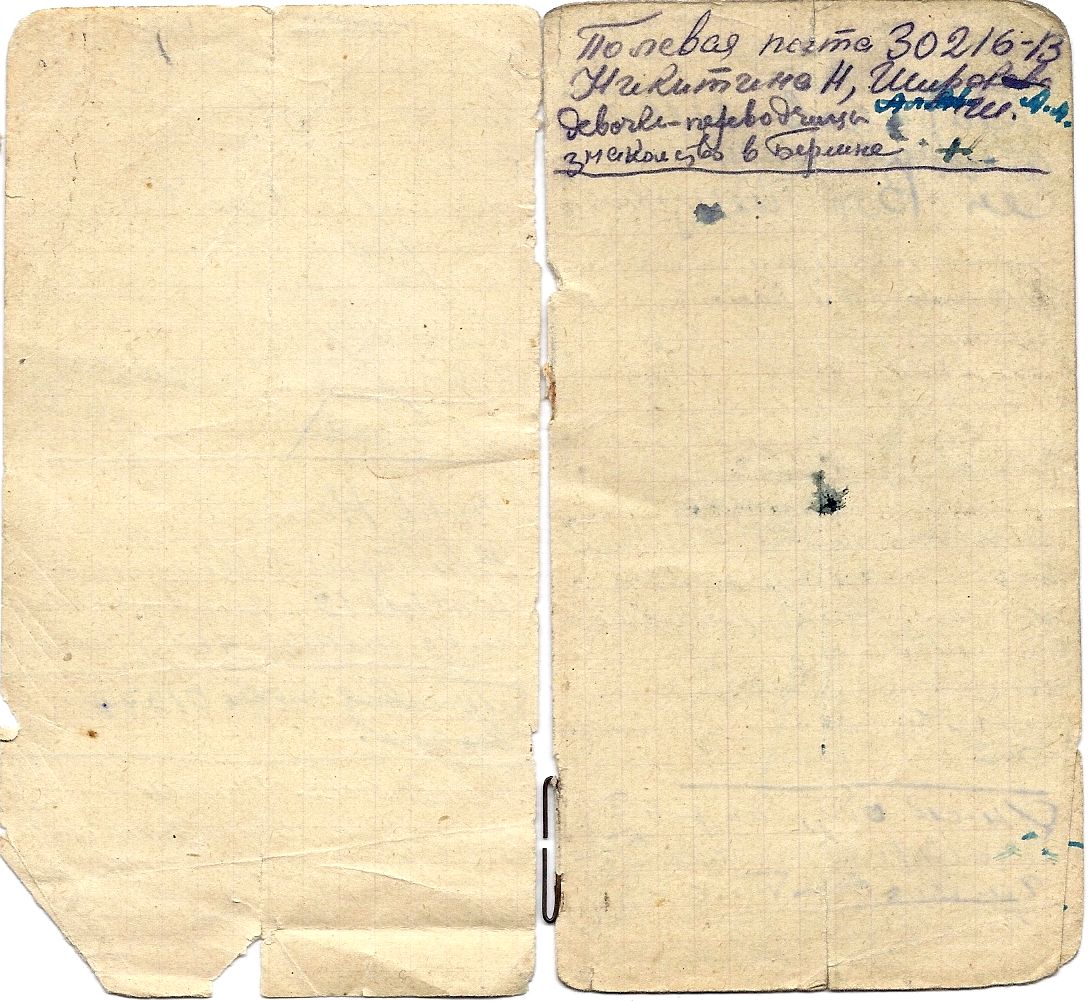 Полевая почта 30216-В
Никитина Н, Широкова
девочки-переводчицы А.А.
знакомство в Берлине